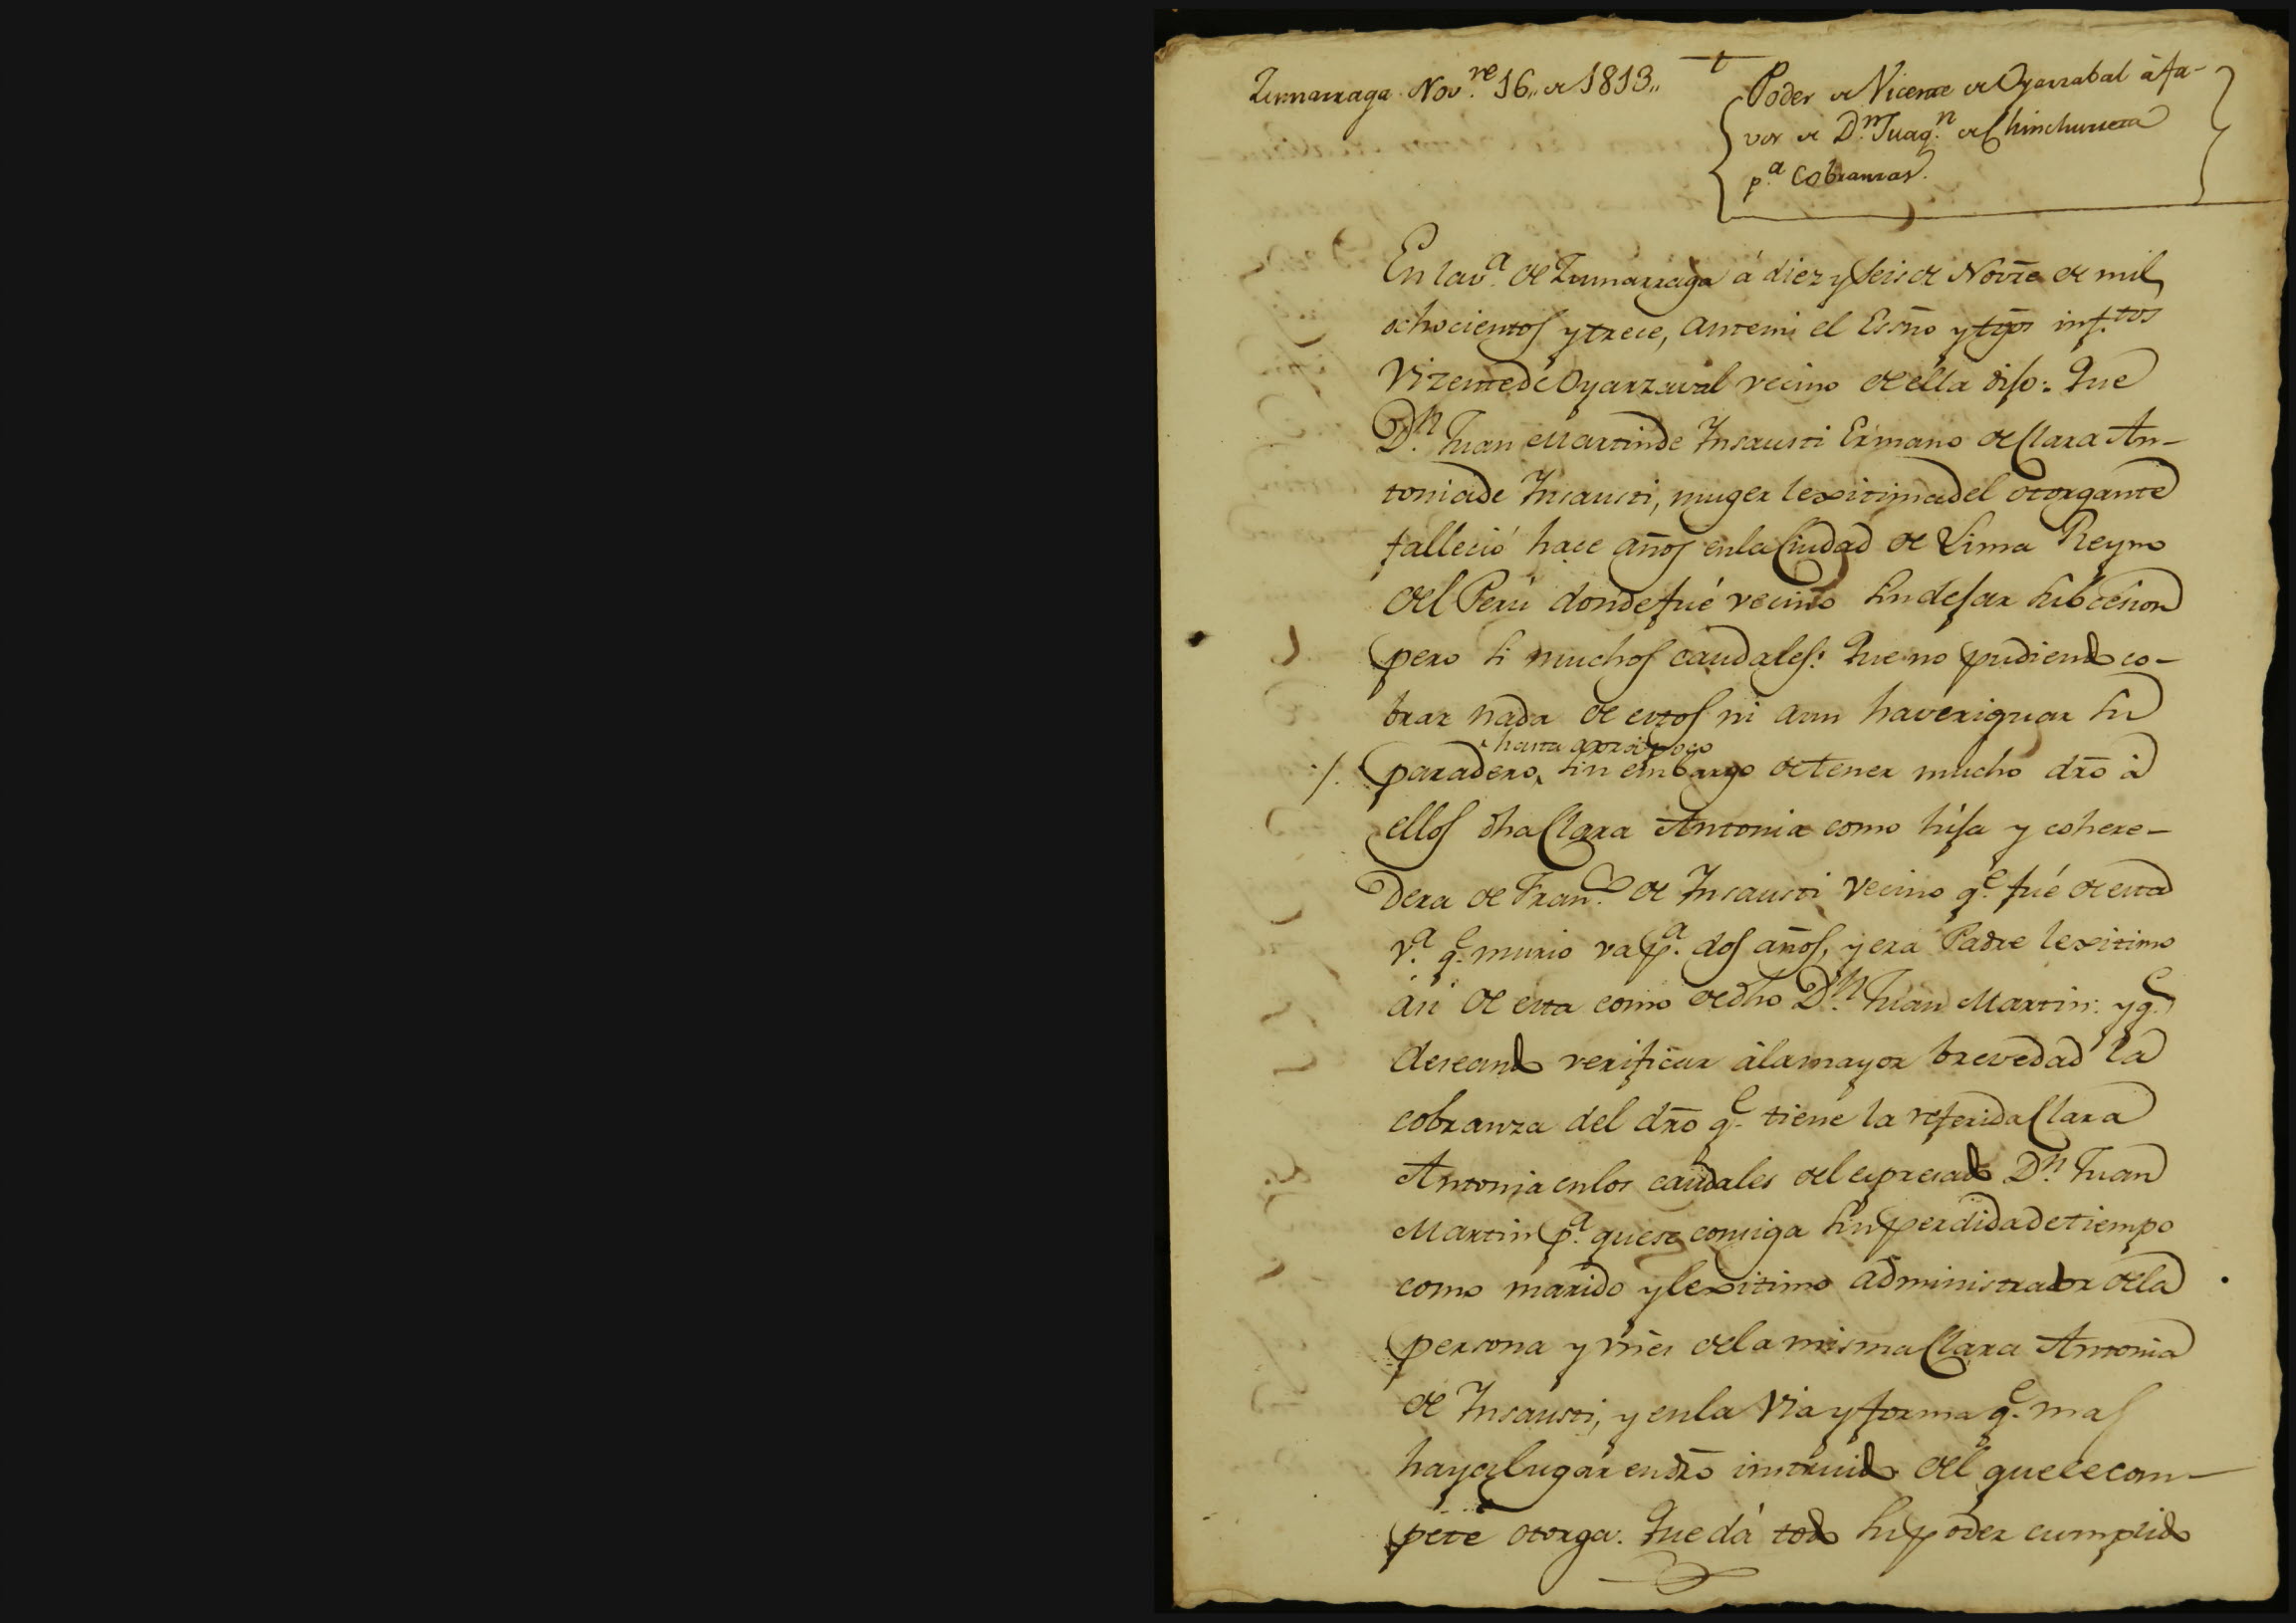 Zumarraga Nov.re 16,, de 1813,,
t
Poder de Vicente de Oyarzabal à fa-
vor de D.n Juaq.n de Chinchurreta
p.a Cobranzas.
En la v.a de Zumarraga á diez y seis de Novre de mil
ochocientos y trece, ante mi el Essno y tgos inf.tos
Vizente de Oyarzaval vecino de ella dijo: Que
D.n Juan Martin de Insausti Ermano de Clara An-
tonia de Insausti, muger lexitima del otorgante
falleció hace años en la Ciudad de Lima Reyno
del Perú donde fué vecino sin dejar subcesion
pero si muchos caudales: Que no pudiendo co-
brar nada de estos ni aun haveriguar su
hasta aora poco
./. paradero, sin embargo de tener mucho dro à
ellos dha Clara Antonia como hija y cohere-
dera de Fran.co de Insausti vecino q.e fué de esta
v.a q.e murio va p.a dos años, y era Padre lexitimo
asi de esta como de dho D.n Juan Martin: y q.e
deseando verificar à la mayor brevedad la
cobranza del dro q.e tiene la referida Clara
Antonia en los caudales del espresado D.n Juan
Martin p.a que se consiga sin perdida de tiempo
como marido y lexitimo administrador de la
persona y vnes de la misma Clara Antonia
de Insausti, y en la via y forma q.e mas
haya lugar en dro instruido del que le com-
pete otorga. Que dá todo su poder cumplido